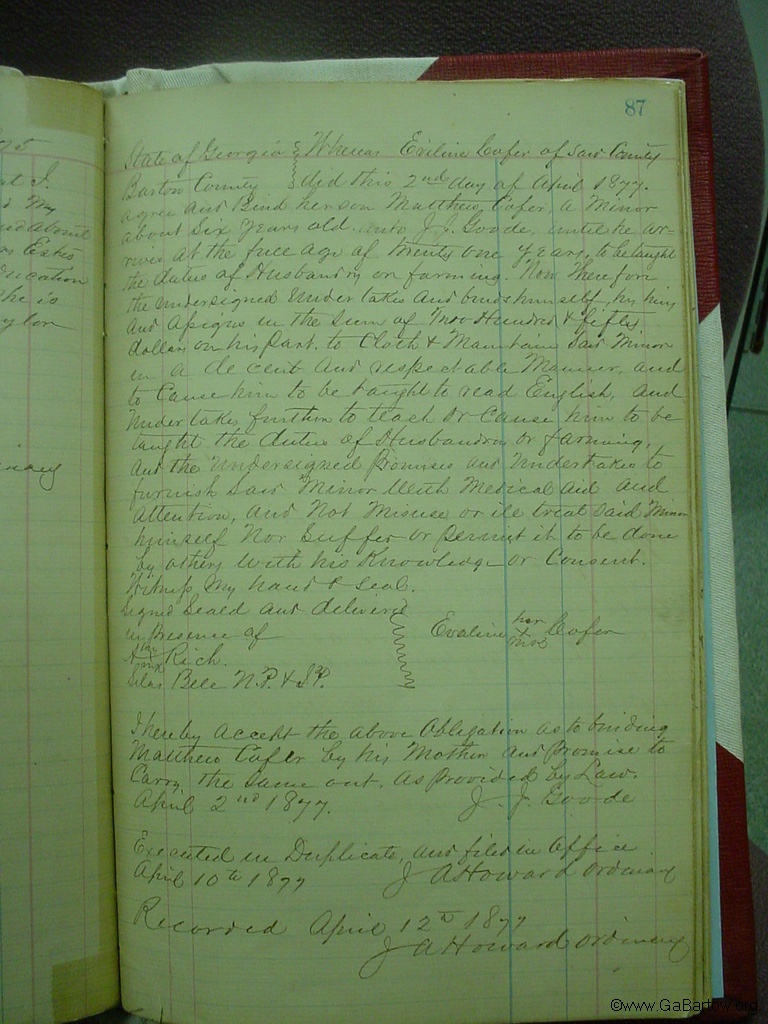 87
State of Georgia Whereas Eveline Cofer of said County
Bartow County did this 2nd day of April 1877.
agree and Bind her son Matthew Cofer, a Minor
about Six Years old unto J. J. Goode, until he ar-
rives at the full age of Twenty one years, to be taught
the duties of Husbandry or farming. Now Therefore
the undersigned under takes and binds himself, his heirs
and assigns in the sum of Two Hundred & fifty
dollars on his Part. to Cloth & Maintain said Minor
in a decent and respectable Manner, and
to Cause him to be taught to read English, and
under takes further to teach or Cause him to be
taught the duties of Husbandry or farming,
And the undersigned Promises and undertakes to
furnish said Minor With Medical Aid and
attention, and Not Misuse or ill treat said Minor
himself Nor Suffer or permit it to be done
by others With his Knowledge or Consent.
Witness My hand & seal.
Signed Seald and delivered
in presence of Evaline her x mark Cofer
Rich.
Silas Bell N.P. & J.P.
I hereby accept the above Obligation as to binding
Matthew Cofer by his Mother and Promise to
Carry the same out, as provided by Law.
April 2nd 1877. J. J. Goode
Executed in Duplicate, and filed in Office
April 10th 1877 J A Howard ordinary
Recorded April 12th 1877
J A Howard ordinary
5
I.
My
and about
Estes
ducation
she is
ylor
inary
©www.GaBartow.org